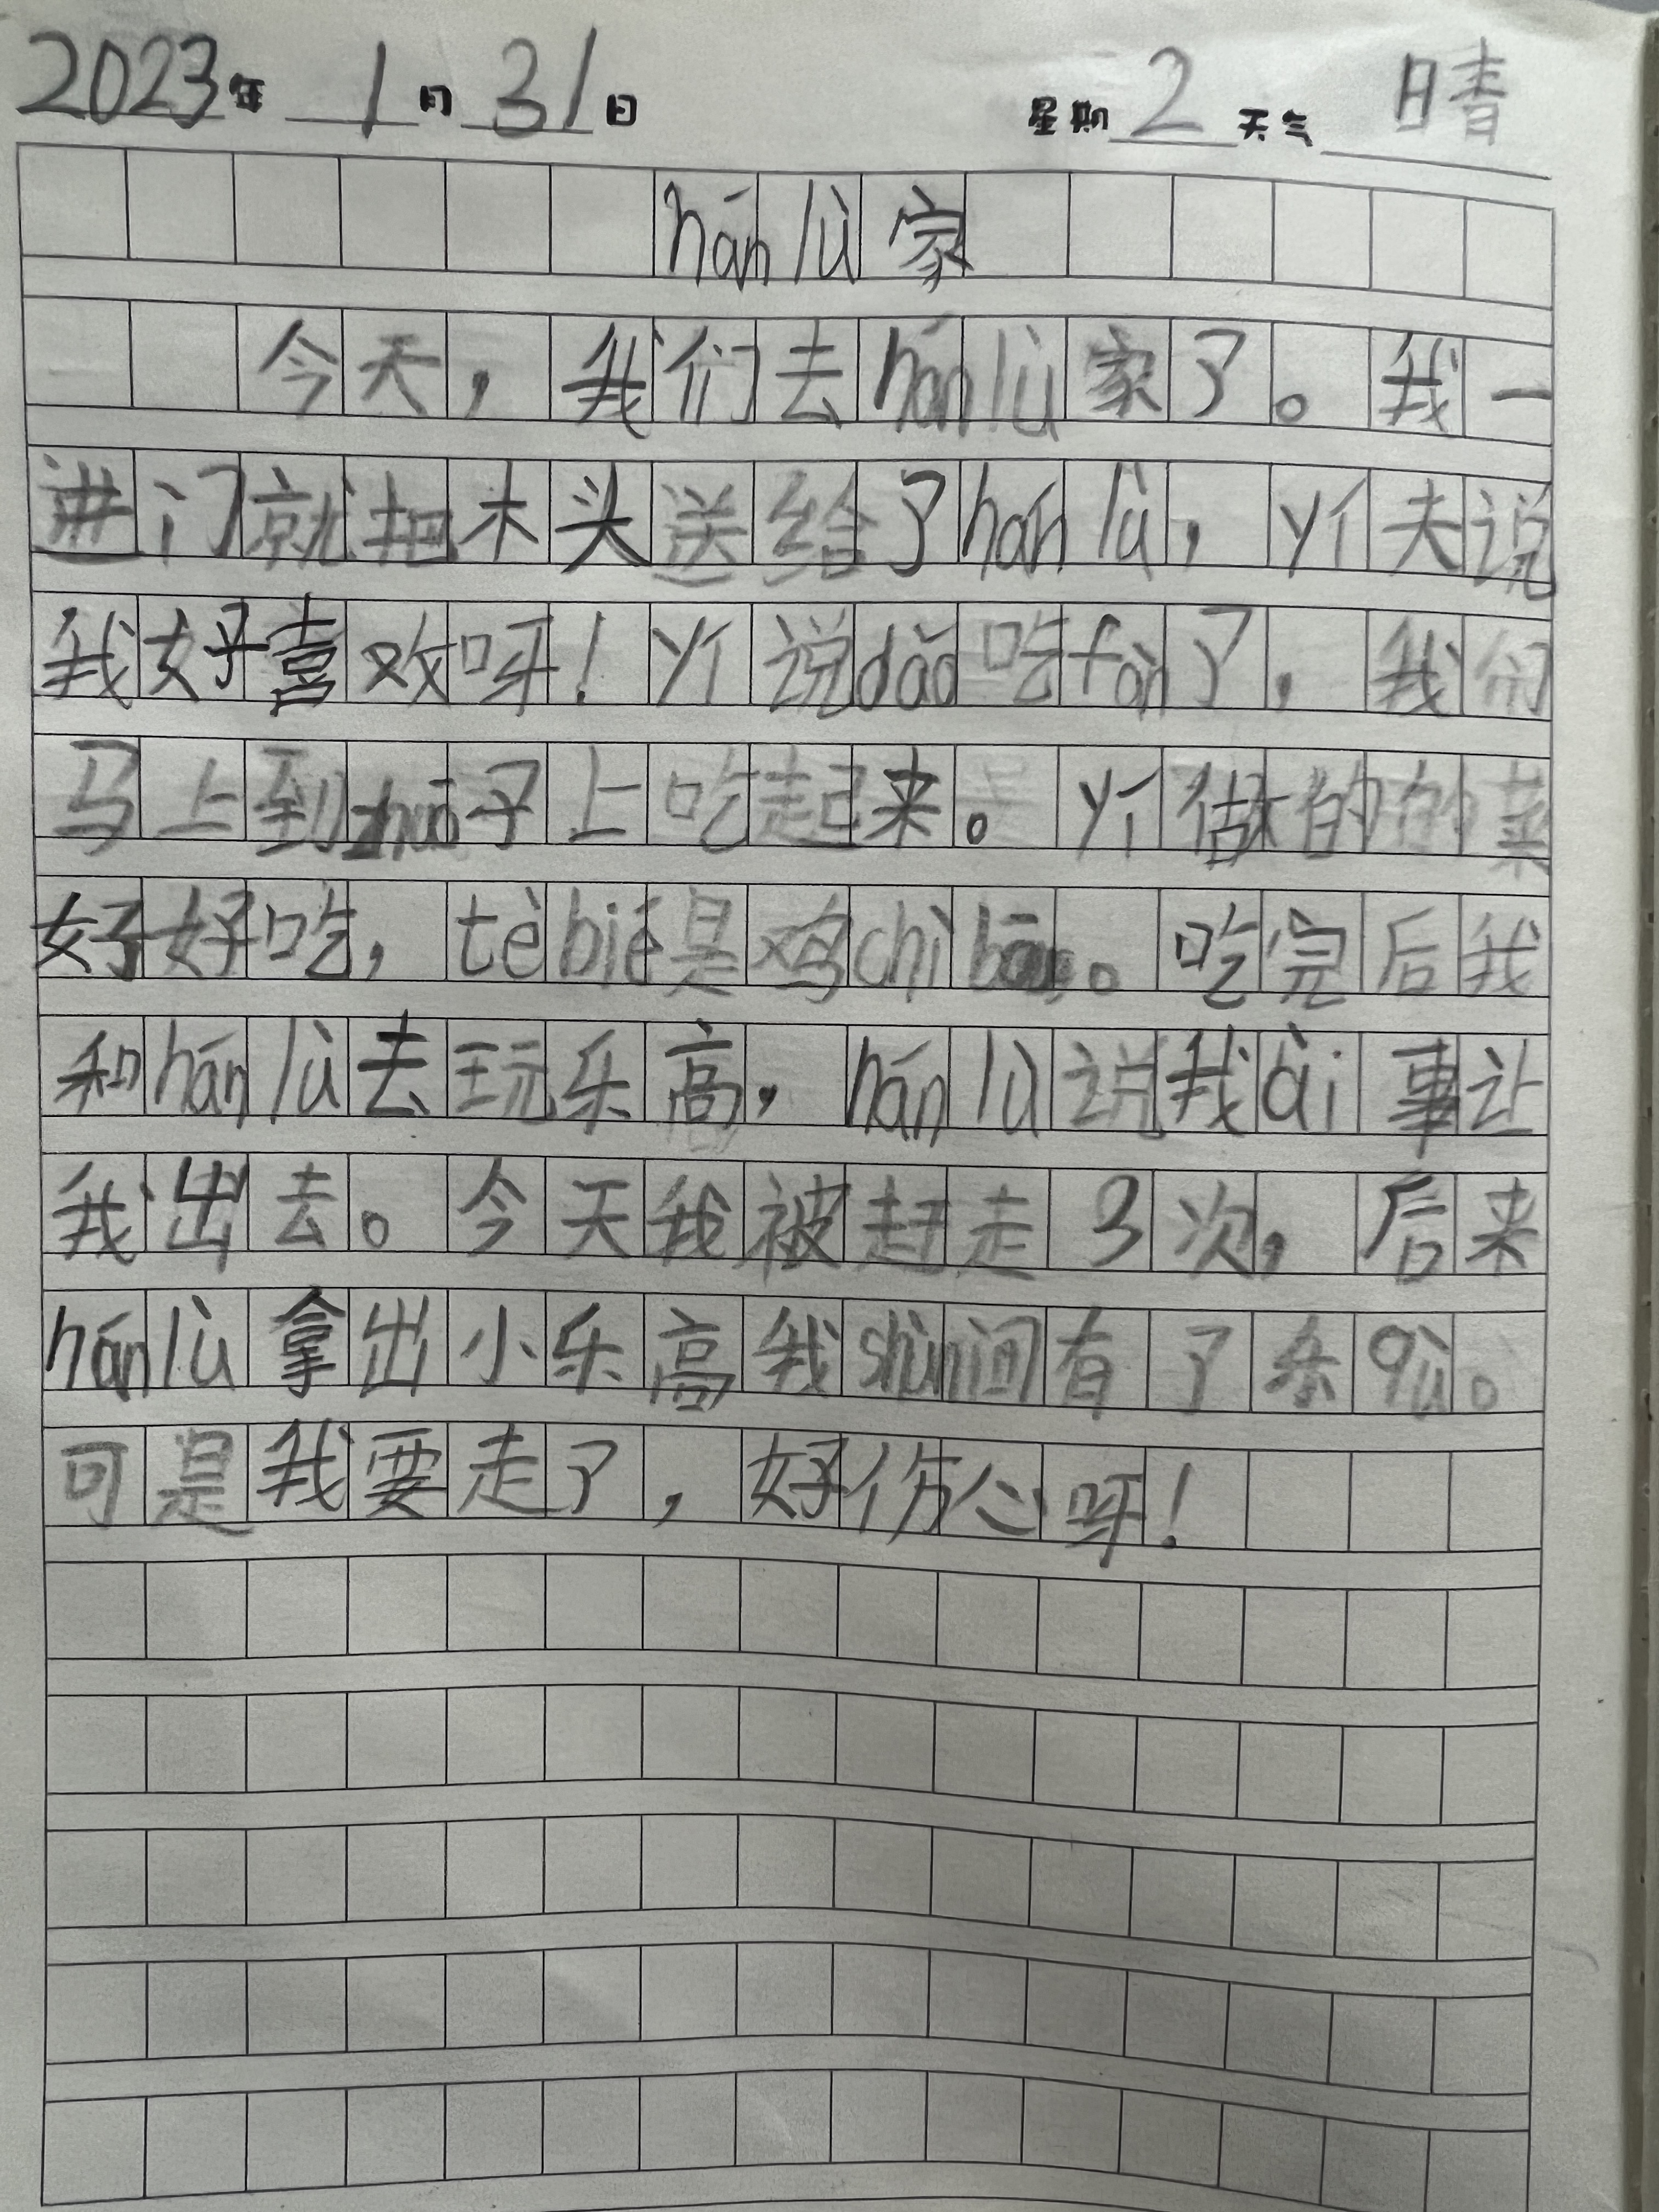 2023年 1月31日 星期2 天气 晴
hán lù 家
今天，我们去hán lù家了。我一
进门就把木头送给了hán lù，丫丫夫说
我好喜欢呀！丫说dào吃fàn了，我们
马上到zhuō子上吃起来。做的的菜
好好吃，tè bié是鸡chì bǎng。吃完后我
和hán lù去玩乐高，hán lù说我ài事让
我出去。今天我被赶走3次，后来
hán lù拿出小乐高我shùn间有了乐qù。
可是我要走了，好伤心呀！